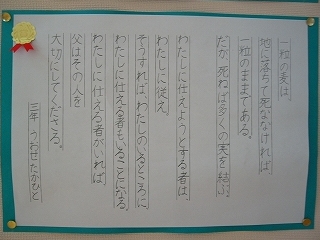 一粒の麦は、
地に落ちて死ななければ、
一粒のままである。
だが、死ねば多くの実を結ぶ。
わたしに仕えようとする者は、
わたしに従え。
そうすれば、わたしのいるところに、
わたしに仕える者もいることになる。
わたしに仕える者がいれば、
父はその人を
大切にしてくださる。
三年 うわせたかもと